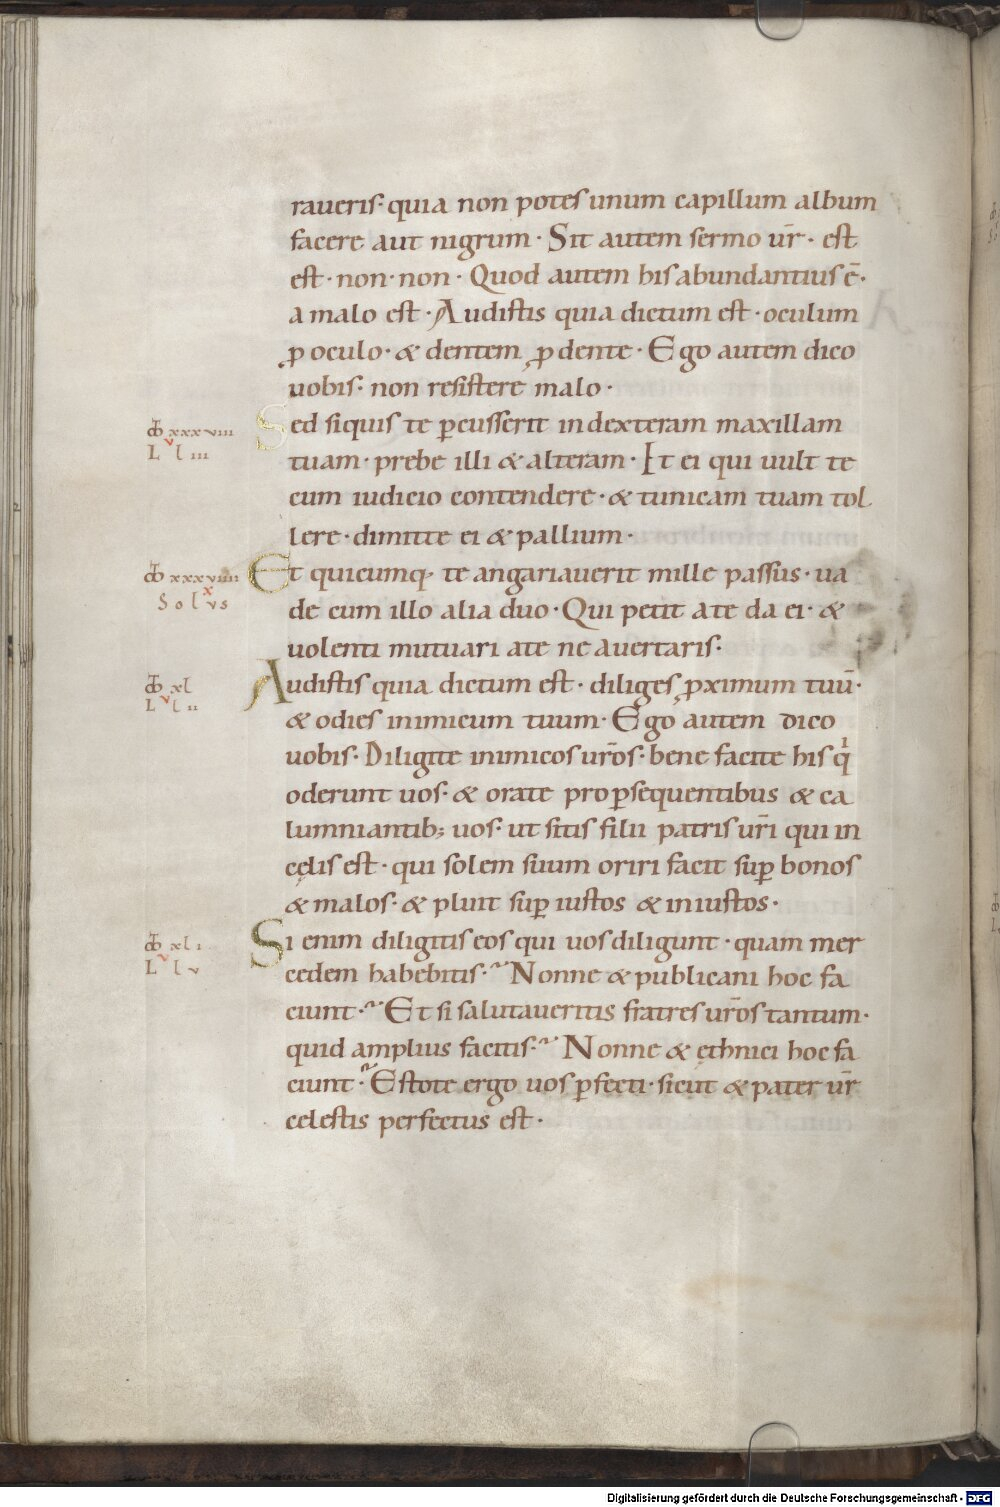 raueris· quia non potes unum capillum album
facere aut nigrum· Sit autem sermo ur̄· est
est· non· non· Quod autem his abundantius ē·
a malo est· Audistis quia dictum est· oculum
ꝓ oculo· & dentem ꝓ dente· Ego autem dico
uobis· non resistere malo·
xxxviii
L v l iii
Sed siquis te ꝑcusserit in dexteram maxillam
tuam· prebe illi & alteram· Et ei qui uult te
cum iudicio contendere· & tunicam tuam tol
lere· dimitte ei & pallium·
xxxviiii
x
Sol vs
Et quicumq; te angariauerit mille passus· ua
de cum illo alia duo· Qui petit a te da ei· &
uolenti mutuari a te ne auertaris·
xl
L v l ii
Audistis quia dictum est· diliges ꝓximum tuū·
& odies inimicum tuum· Ego autem dico
uobis· Diligite inimicos ur̄os· bene facite his qⁱ
oderunt uos· & orate pro ꝑsequentibus & ca
lumniantib; uos· ut sitis filii patris ur̄i qui in
cęlis est· qui solem suum oriri facit suꝑ bonos
& malos· & pluit suꝑ iustos & iniustos·
xli
L v l v
Si enim diligitis eos qui uos diligunt· quam mer
cedem habebitis? Nonne & publicani hoc fa
ciunt? Et si salutaueritis fratres ur̄os tantum·
quid amplius facitis? Nonne & ęthnici hoc fa
ciunt? Estote ergo uos ꝑfecti· sicut & pater ur̄
celestis perfectus est·
Digitalisierung gefördert durch die Deutsche Forschungsgemeinschaft - DFG